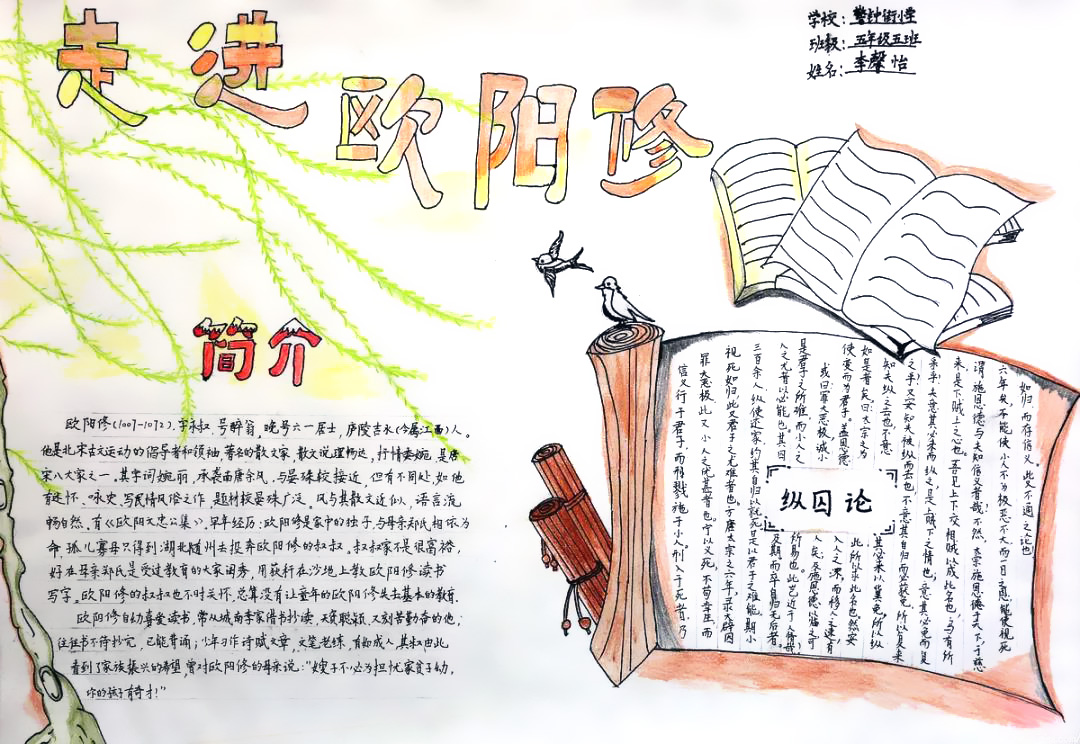 走进
欧阳修
学校：警钟街小学
班级：五年级五班
姓名：李馨怡
简介
欧阳修(1007-1072),字永叔,号醉翁,晚号六一居士,庐陵吉水(今属江西)人。
他是北宋古文运动的倡导者和领袖,著名的散文家,散文说理畅达,抒情委婉,是唐
宋八大家之一,其字词婉丽,承袭南唐余风,与晏殊较接近,但有不同处,如他
有述怀、咏史、写民情风俗之作,题材较晏殊广泛。风与其散文近似、语言流
畅自然,有《欧阳文忠公集》,早年经历:欧阳修是家中的独子,与母亲郑氏相依为
命,孤儿寡母只得到:湖北随州去投奔欧阳修的叔叔。叔叔家不是很富裕,
好在母亲郑氏是受过教育的大家闺秀,用荻秆在沙地上教欧阳修读书
写字。欧阳修的叔叔也不时关怀,总算没有让童年的欧阳修失去基本的教育.
欧阳修自幼喜爱读书,常从城南李家借书抄读,天资聪颖,又刻苦勤奋的他;
往往书不待抄完,已能背诵;少年习作诗赋文章,文笔老练,有如成人,其叔由此
看到了家族振兴的希望,曾对欧阳修的母亲说:"嫂子不必为担忧家贫子幼,
你的孩子有奇才!"
纵囚论
信义行于君子,而移戮施于小人。刑入于死者,乃
罪大恶极,此又小人之尤甚者也。宁以义死,不苟幸生,而
视死如归,此又君子之尤难者也。方唐太宗之六年,录大辟囚
三百余人,纵使还家,约其自归以就死。是以君子之难能,期小
人之尤者以必能也。其囚及期,而卒自归无后者。
是君子之所难,而小人之所易也。此岂近于人情哉
或曰:罪大恶极,诚小人矣;及施恩德以临之,可
使变而为君子。盖恩德入人之深,而移人之速,有
如是者矣。曰:太宗之为此,所以求此名也。然安
知夫纵之去也,不意其必来以冀免,所以纵
之乎?又安知夫被纵而去也,不意其自归而必获免,所以复来
乎?夫意其必来而纵之,是上贼下之情也;意其必免而复
来,是下贼上之心也。吾见上下交相贼以成此名也,乌有所
谓施恩德与夫知信义者哉?不然,太宗施恩德于天下,于兹
六年矣,不能使小人不为极恶不大而一日之恩,能使视死
如归,而存信义。此又不通之论也